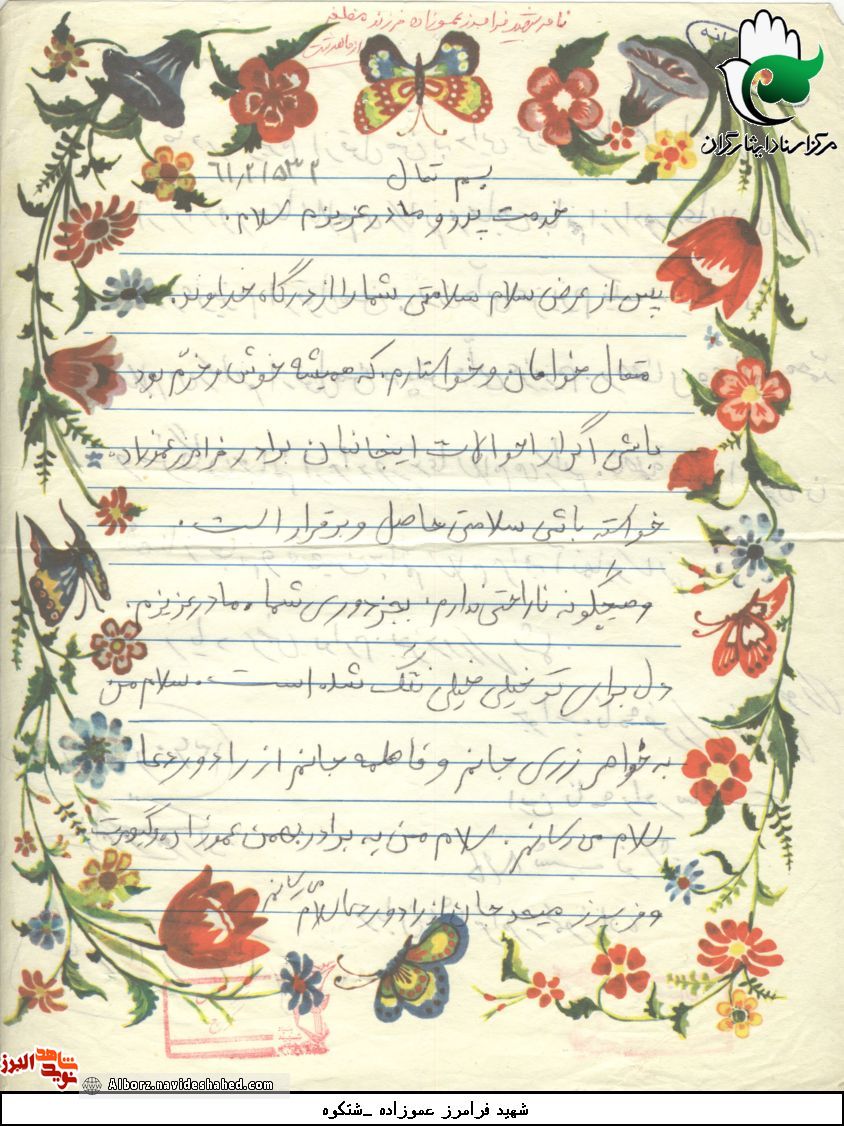 نامه شهید فرامرز عموزاده فرزند مظفر
مرکز اسناد ایثارگران
بسم تعال ۶۱٫۲٫۵
خدمت پدر و مادر عزیزم سلام.
پس از عرض سلام سلامتی شما را از درگاه خداوند.
متعال خواهان و خواستارم. که همیشه خوش و خرّم بود
باشی اگر از احوالات اینجانبان برادر فرامرز عموزاده
خواسته باشی سلامتی حاصل و برقرار است.
و هیچگونه ناراحتی ندارم. بجز دوری شما. مادر عزیزم.
دل برای تو خیلی خیلی تنگ شده است. سلام من
به خواهر زری جانم و فاطمه جانم از راه دور دعا
سلام می رسانم. سلام من به برادر بهمن عموزاده و کیومرث
و فریبرز جان از راه دور سلام می رسانم
شاهد
نوید
البرز
Alborz.navideshahed.com
شهید فرامرز عموزاده _شتکوه